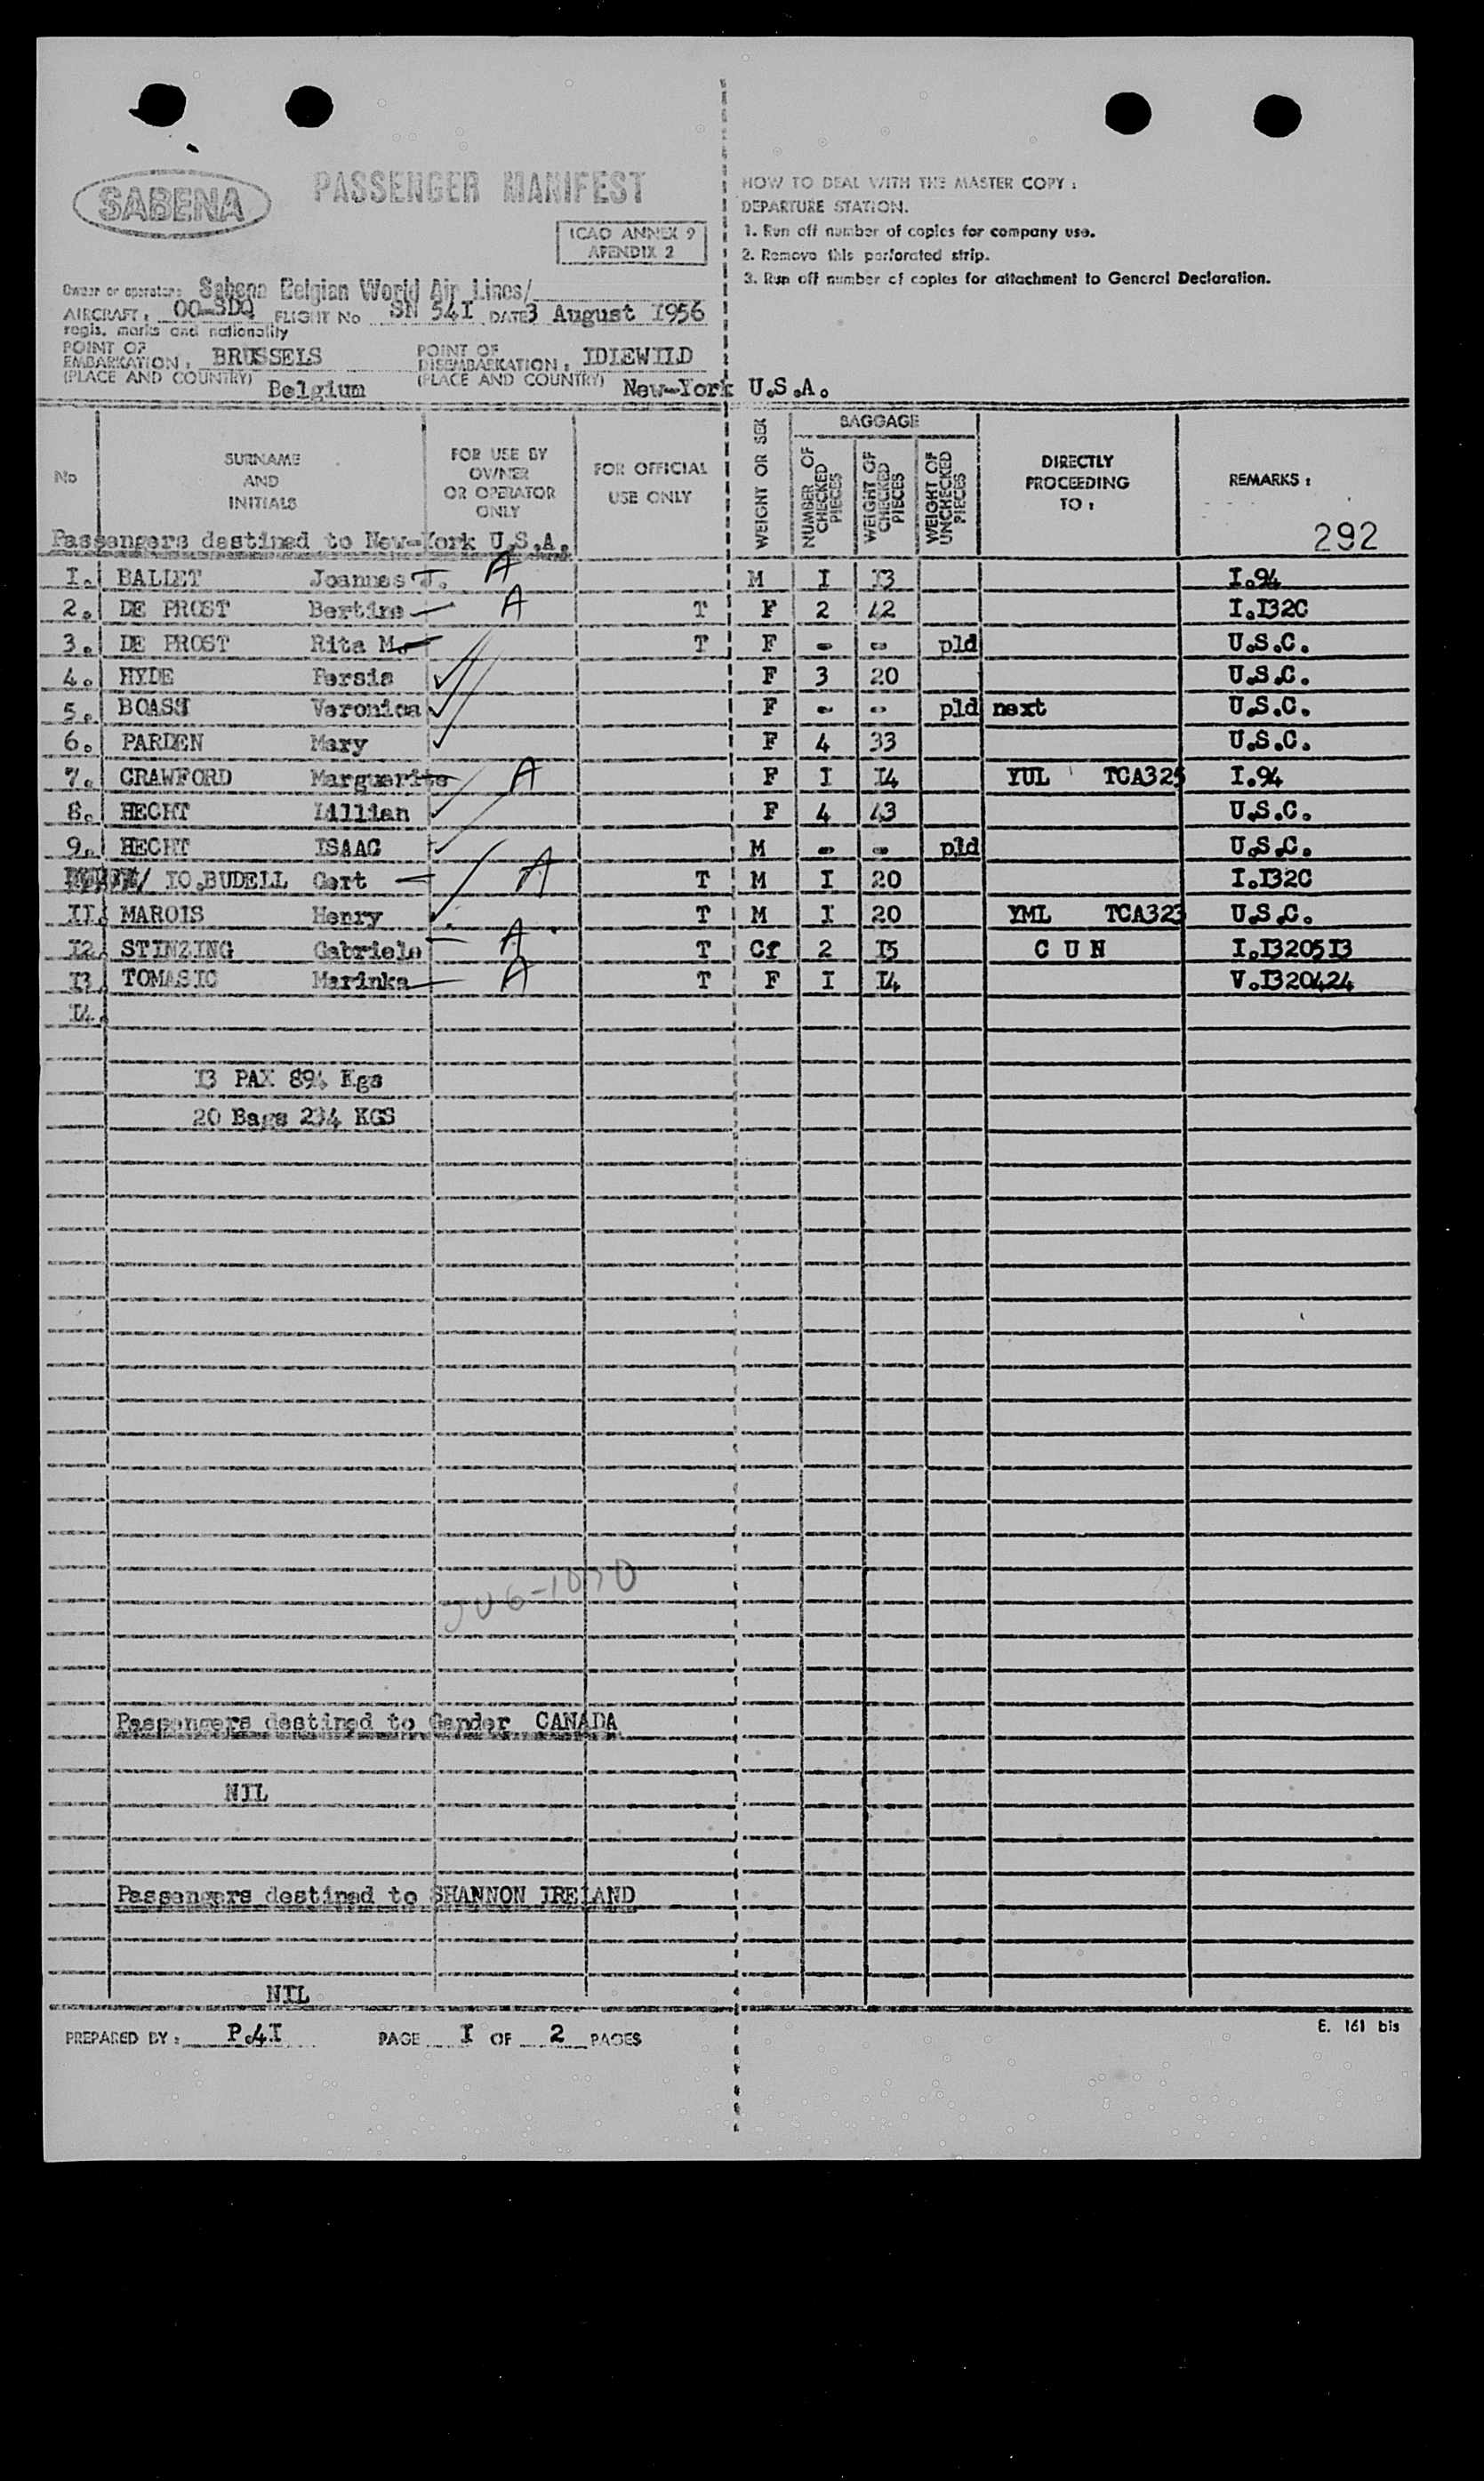 SABENA
PASSENGER MANIFEST
ICAO ANNEX 9
APENDIX 2
HOW TO DEAL WITH THE MASTER COPY :
DEPARTURE STATION.
1. Run off number of copies for company use.
2. Remove this perforated strip.
3. Run off number of copies for attachment to General Declaration.
Owner or operator: Sabena Belgian World Air Lines/
AIRCRAFT : OO-SDQ FLIGHT No SN 54I DATE 3 August I956
regis. marks and nationality
POINT OF EMBARKATION : BRUSSELS POINT OF DISEMBARKATION : IDIEWILD
(PLACE AND COUNTRY) Belgium (PLACE AND COUNTRY) New-York U.S.A.
No SURNAME AND INITIALS FOR USE BY OWNER OR OPERATOR ONLY FOR OFFICIAL USE ONLY WEIGHT OR SEX BAGGAGE NUMBER OF CHECKED PIECES WEIGHT OF CHECKED PIECES WEIGHT OF UNCHECKED PIECES DIRECTLY PROCEEDING TO : REMARKS :
Passengers destined to New-York U.S.A. 292
I. BALLET Joannes J. A M I I3 I.94
2. DE PROST Bertine A T F 2 42 I.I32C
3. DE PROST Rita M. T F - - pld U.S.C.
4. HYDE Persis F 3 20 U.S.C.
5. BOASH Veronica F - - pld next U.S.C.
6. PARDEN Mary F 4 33 U.S.C.
7. CRAWFORD Marguerite A F I I4 YUL TCA325 I.94
8. HECHT Lillian F 4 43 U.S.C.
9. HECHT ISAAC M - - pld U.S.C.
IO.BUDELL Gert A T M I 20 I.I32C
II. MAROIS Henry T M I 20 YML TCA323 U.S.C.
I2. STINZING Gabriele A T Cf 2 I5 C U N I.I3205I3
I3. TOMASIC Marinka A T F I I4 V.I320424
I4.
I3 PAX 894 Kgs
20 Bags 234 KGS
Passengers destined to Gander CANADA
NIL
Passengers destined to SHANNON IRELAND
NIL
PREPARED BY : P.4I PAGE I OF 2 PAGES
E. 161 bis